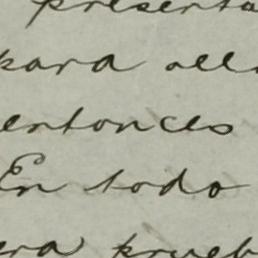 presenta
para ella
entonces
En todo
era prueb